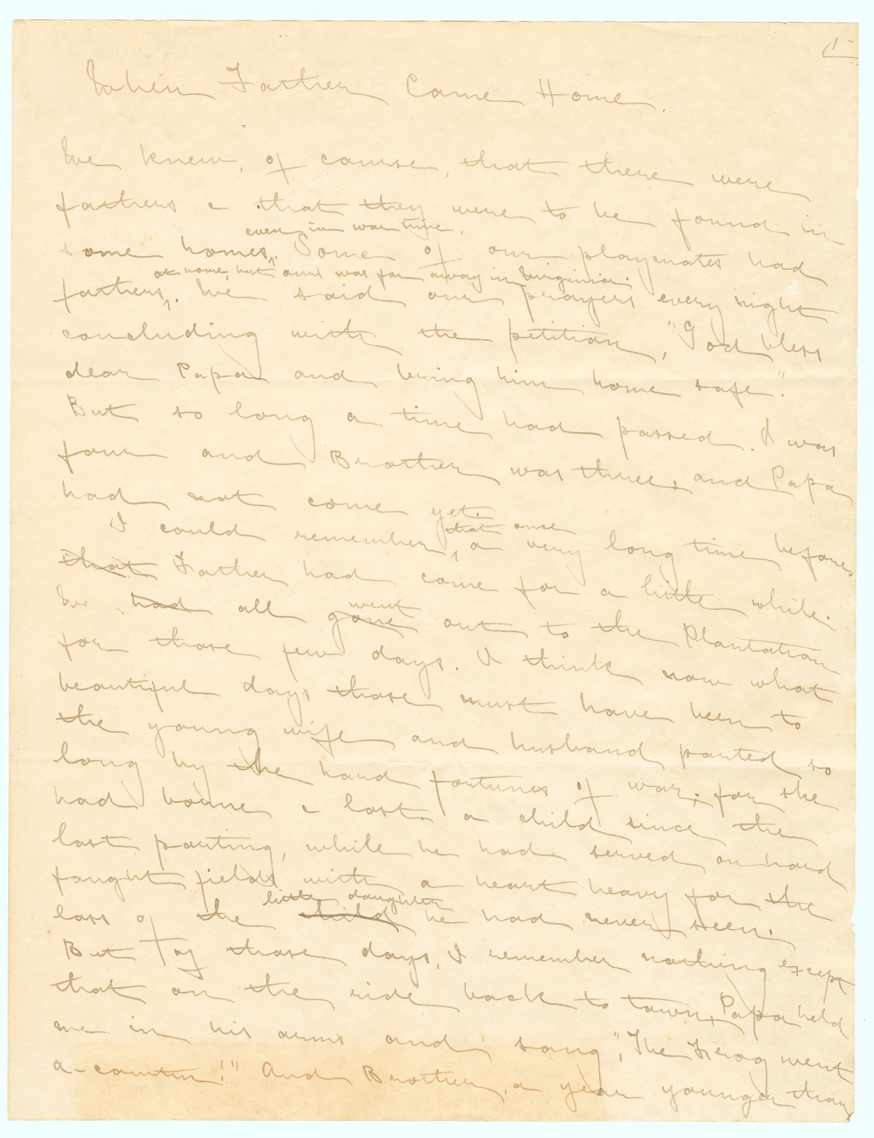 1
When Father Came Home.
We knew, of course, that there were
fathers & that they were to be found in
even in war time.
some homes. Some of our playmates had
at home, but ours was far away in Virginia.
fathers. We said our prayers every night
concluding with the petition, "God bless
dear Papa and bring him home safe."
But so long a time had passed. I was
four and Brother was three, and Papa
had not come yet.
that once
I could remember, a very long time before,
that Father had come for a little while.
We had all gone went out to the Plantation
for those few days. I think now what
beautiful days those must have been to
the young wife and husband parted so
long by the hard fortunes of war; for she
had borne & lost a child since the
last parting, while he had served on hard
fought fields with a heart heavy for the
little daughter
loss of the child he had never seen.
But of those days, I remember nothing except
that on the ride back to town, Papa held
me in his arms and sang, "The Frog went
a-courtin!" And Brother, a year younger than